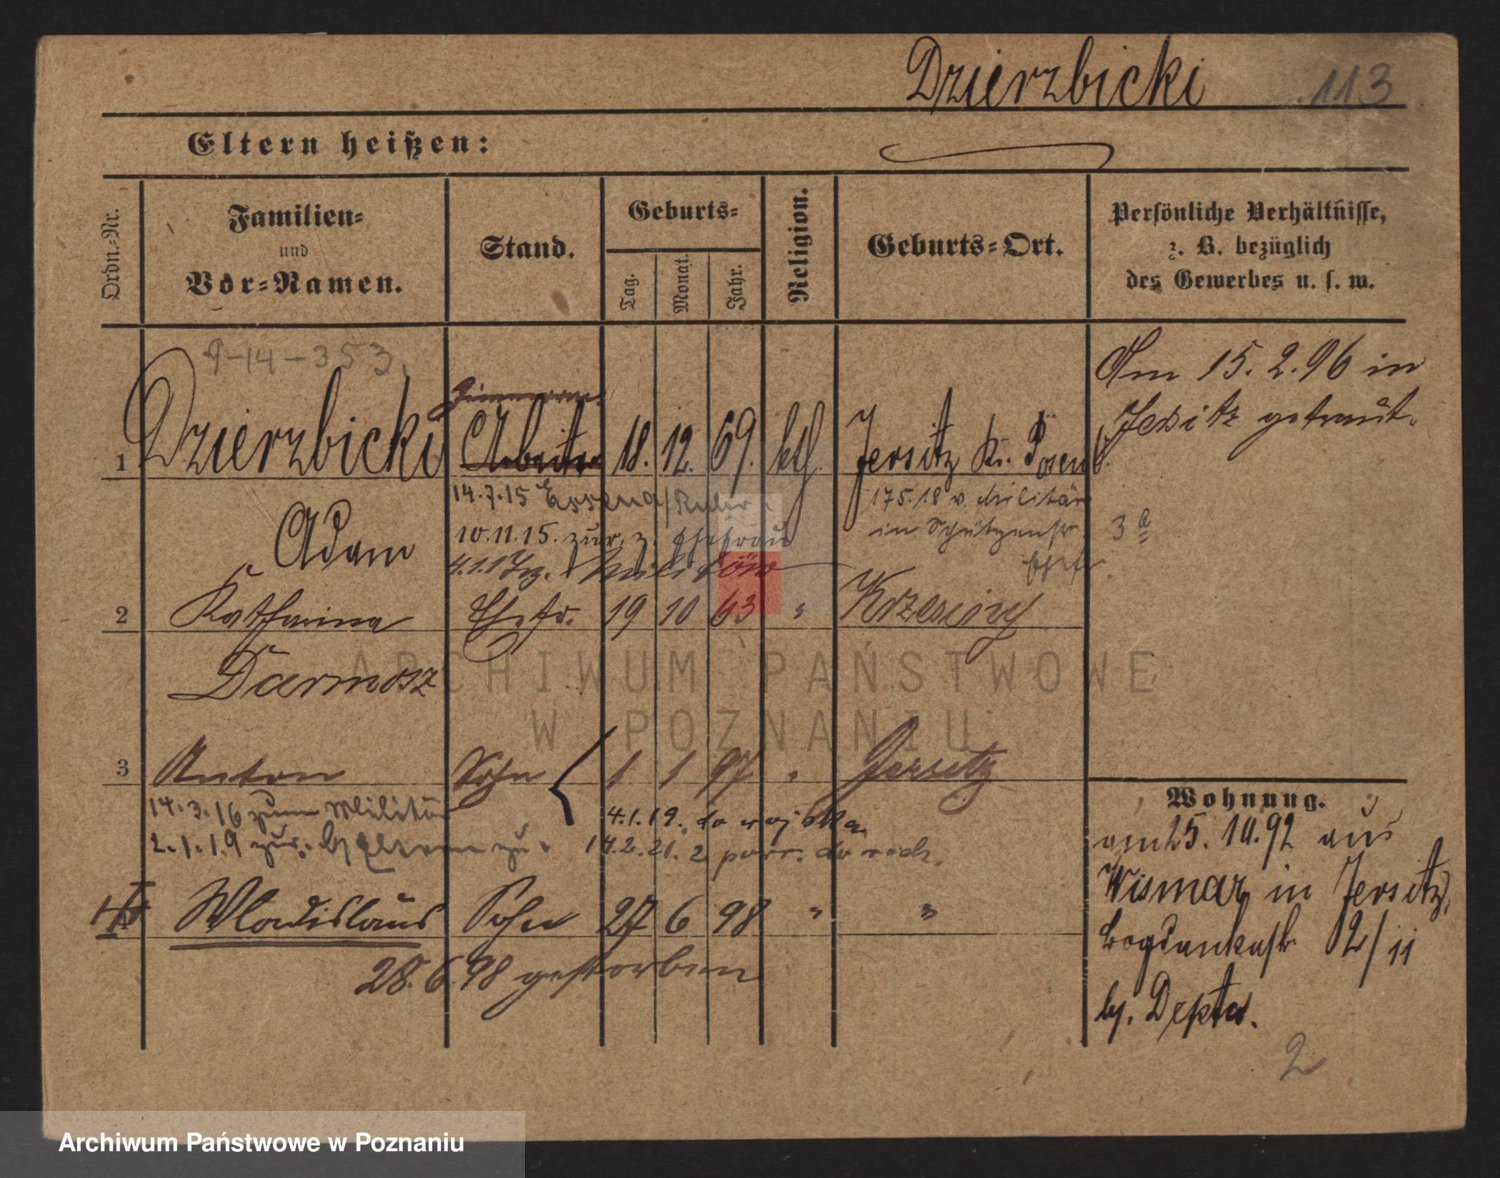 Dzierzbicki 113
Eltern heißen:
Ordn.-Nr.
Familien-
und
Vor-Namen.
Stand.
Geburts-
Tag.
Monat.
Jahr.
Religion.
Geburts-Ort.
Persönliche Verhältnisse,
z. B. bezüglich
des Gewerbes u. s. w.
9-14-353.
Am 15.2.96 in
Jersitz getraut.
Zimmerm.
1 Dzierzbicki Arbeiter 18. 12. 69. kth Jersitz Kr. Posen
14.7.15 Essen a/Ruhr
175.18 v. Militär
Adam
10.11.15. zur. z. Ehefrau
in Schützenstr
3a
Militär
2 Katharina Ehefr. 19 10 63 " Krzesiny
Darmosz
3 Anton Sohn 1 1 97 " Jersitz
14.3.16 zum Militär
4.1.19. do wojska
2.1.19 zur. b/Eltern zu.
14.2.21. z powr. do rodz.
4 Wladislaus Sohn 27 6 98 " "
28.6.98 gestorben
Wohnung.
am 25.10.92 aus
Wismar in Jersitz,
Bogdankastr. 12/11
bj. Depta.
2
ARCHIWUM PAŃSTWOWE
W POZNANIU
Archiwum Państwowe w Poznaniu